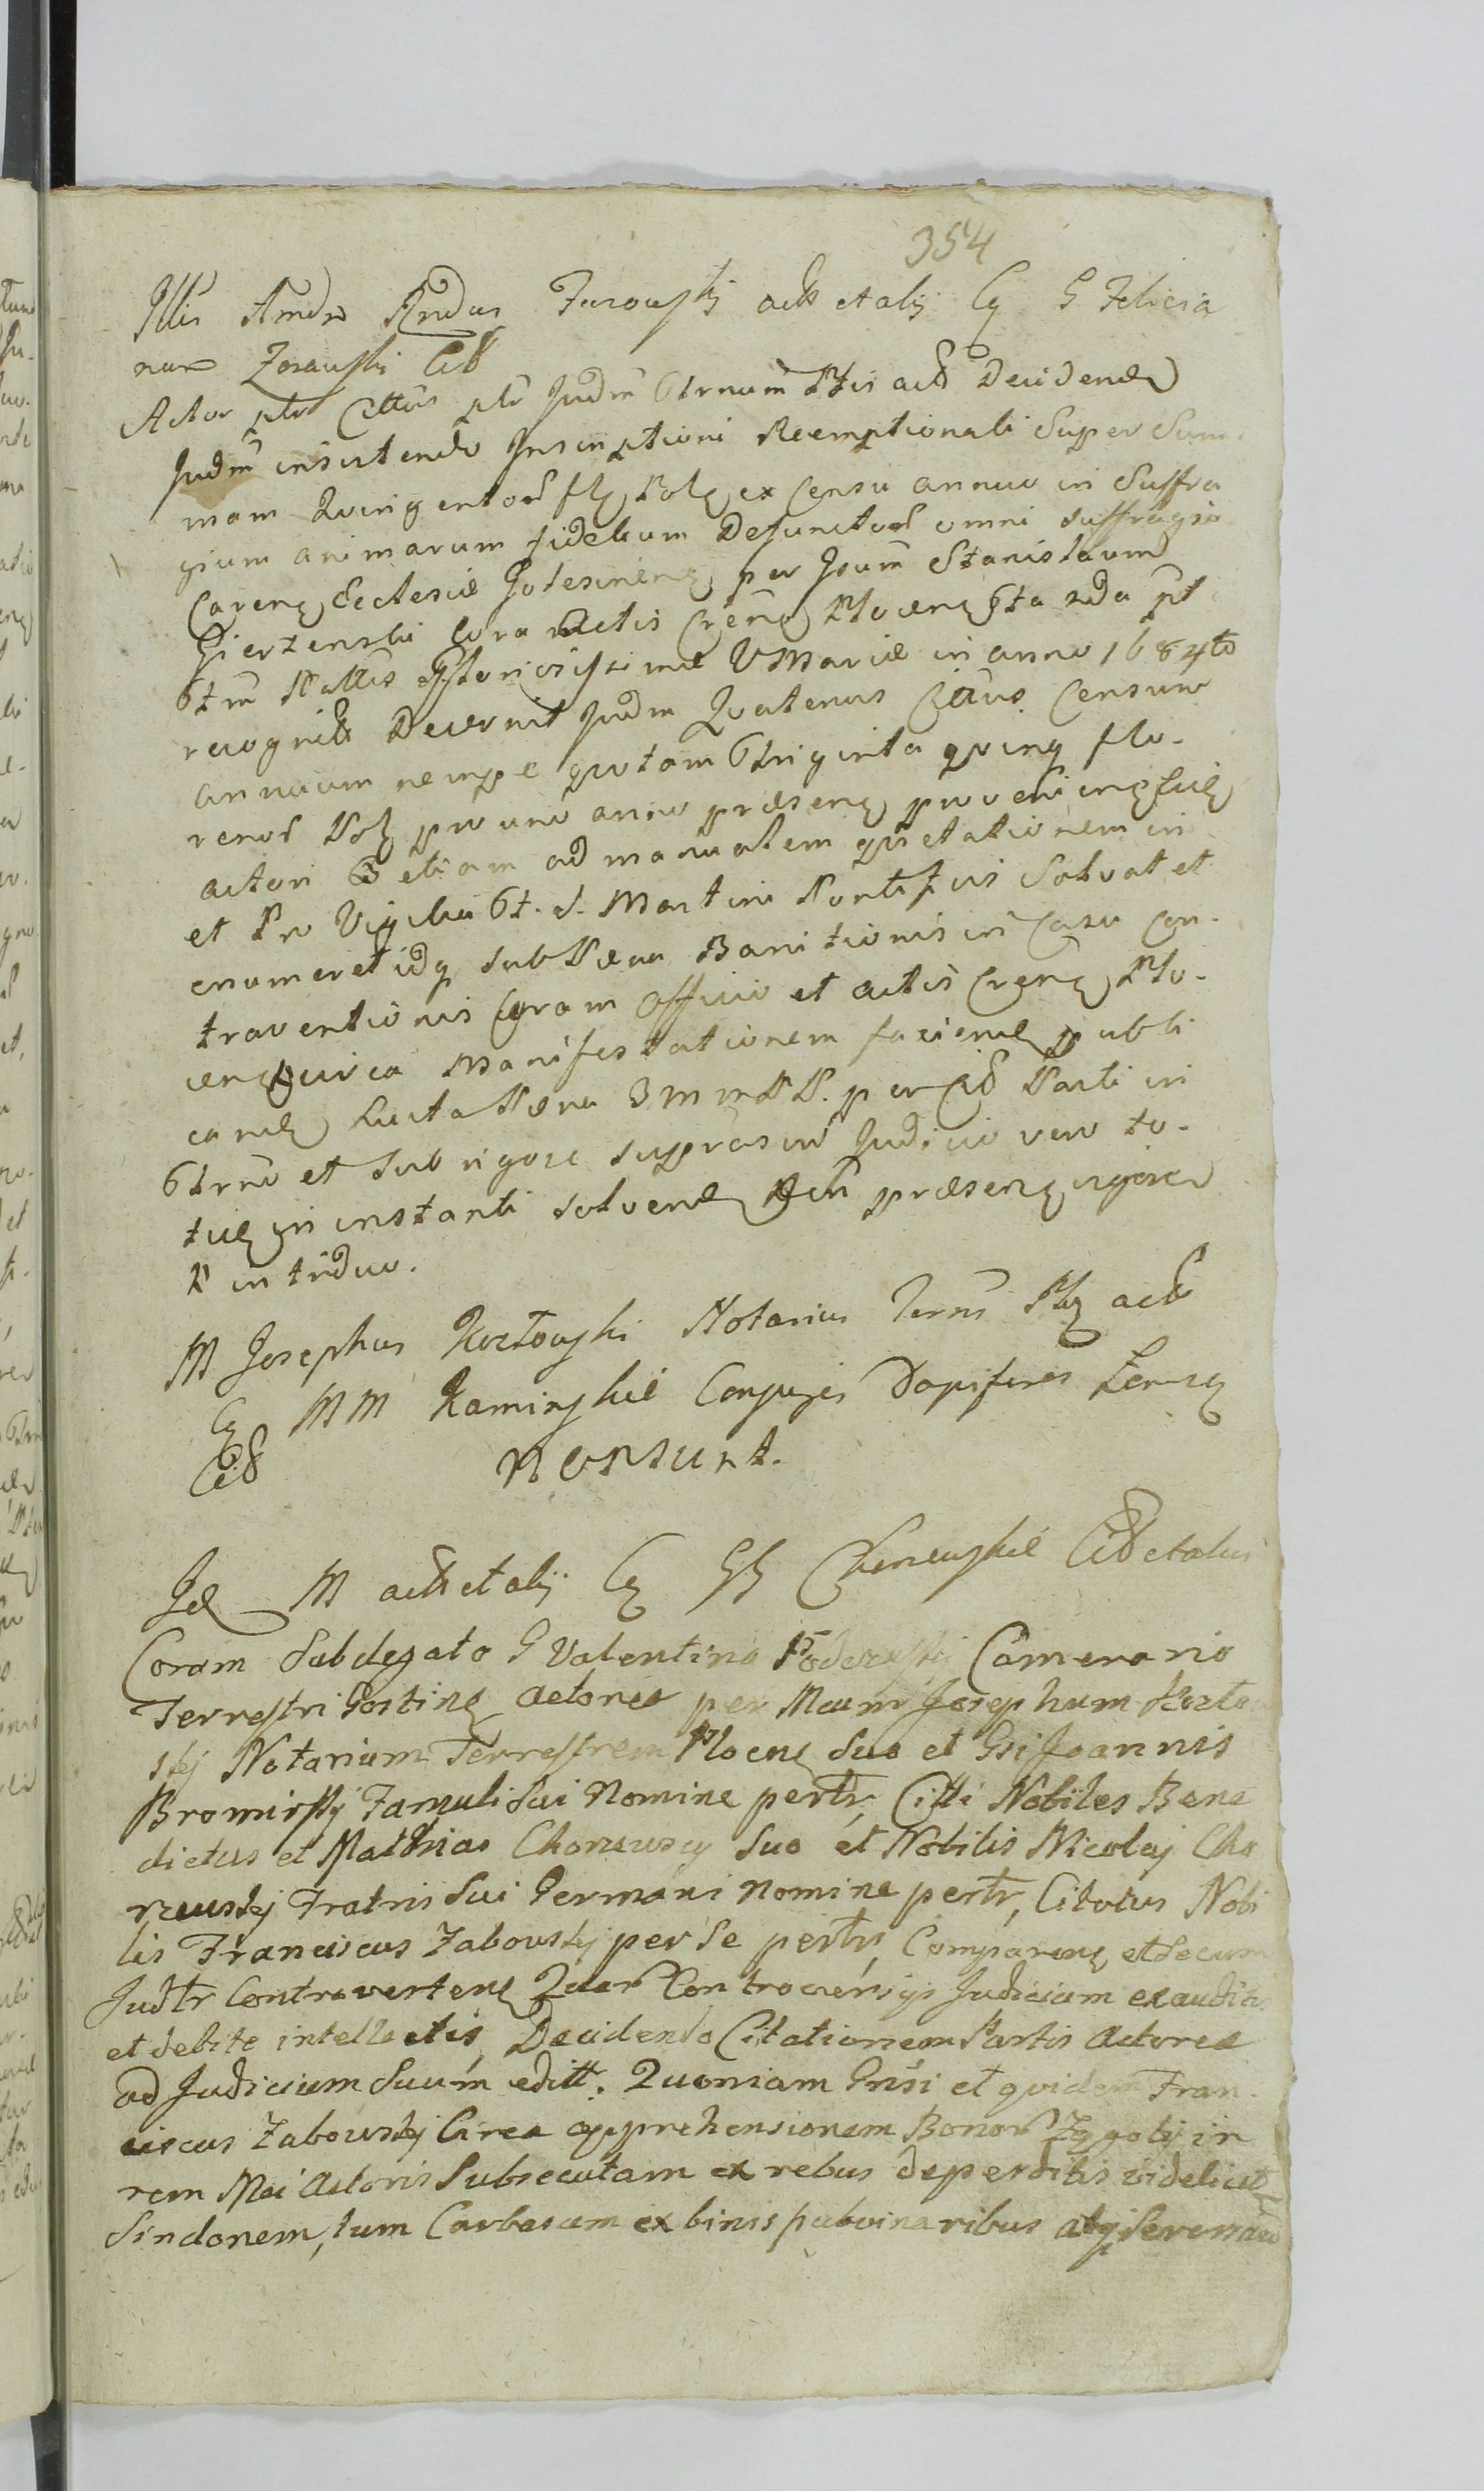 354
Illis Andr Rndus Zurowskj actr et alij Cq G Felicia
num Zorawski Citt
Actor ptr Citts ptr Judm Strnum Ptis act Decidend
Judm insistendo Inscriptioni Reemptionali Super Sum-
mam Quingentor flq Polq ex Censu annuo in Suffra
gium animarum fidelium Defunctor omni suffragio
Carenq Ecclesiæ Golesinenq per Gsum Stanislaum
Gierzenski Cora Actis Crenq Plocenq 6ta 2da pt
6tm Nattis Gloriosissimæ V Mariæ in anno 1684to
recognit Decernit Judm Quatenus Cittus Censum
annuum nempe quotam Triginta quinq flo-
renor Polq pro uno anno præsenq proveni
actori etiam ad manualem quietationem in
et Pro Vigilia 6t. S. Martini Pontificis Solvat et
enumeret idq sub Pæna Banitionis in Casu Con-
traventionis Coram Officio et actis Crenq Plo-
cenq circa Manifestationem faciend publi
cand Lucta Pæna 3 m mr P. per Cit Parti in
6trm et sub rigore Judicio vero to-
tie in instanti solvend præsenq rigore
P in triduo.
M Josephus Kozłowski Notarius Terris Plq act
Cq MM Kaminskie Conjuges Dapiferos
Citt Non sunt.
Id M act et alij Cq GG Chorzewskie Citt et alios
Coram Subdegato G Valentino Poderskj Camerario
Terrestri Gostinq Actorea per Meum Josephum Kozło
skj Notarium Terrestrem Plocenq Suo et Gsi Joannis
Bromirskj Famuli Sui Nomine pertr, Citti Nobiles Bene
dictus et Mathias Chorzewscy Suo et Nobilis Nicolaj Cho
rzewskj Fratris Sui Germani Nomine pertr, Citatus Nobi
lis Franciscus Zabowskj per Se pertr, Comparenq et Secum
Judtr Controvertenq Quar Controversijs Judicium exauditis
et debite intellectis, Decidendo Citationem Partis Actorea
ad Judicium Suum editt. Quoniam Gnsi et quidem Fran-
ciscus Zabowskj Circa apprehensionem Bonor Zągoty in
rem Mei Actoris Subsecutam ex rebus deperditis videlicet
Sindonem, tum Carbasum ex binis pulvinaribus